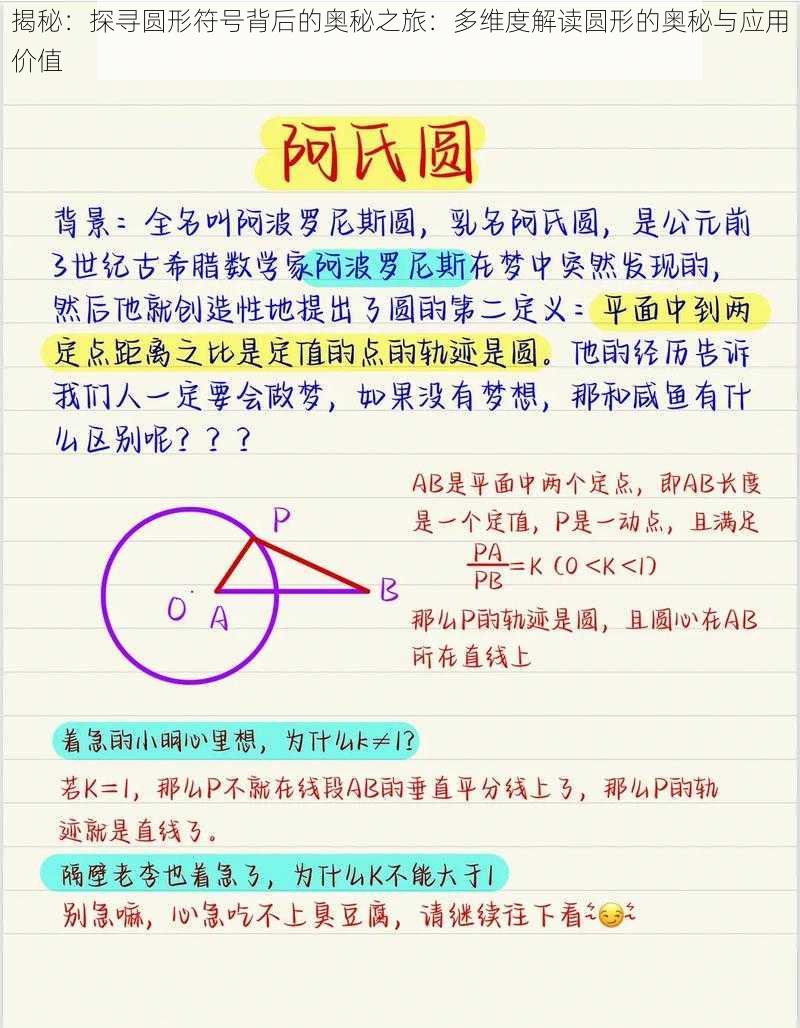 揭秘：探寻圆形符号背后的奥秘之旅：多维度解读圆形的奥秘与应用
价值
阿氏圆
背景：全名叫阿波罗尼斯圆，乳名阿氏圆，是公元前
3世纪古希腊数学家阿波罗尼斯在梦中突然发现的，
然后他就创造性地提出了圆的第二定义：平面中到两
定点距离之比是定值的点的轨迹是圆。他的经历告诉
我们人一定要会做梦，如果没有梦想，那和咸鱼有什
么区别呢？？？
AB是平面中两个定点，即AB长度
是一个定值，P是一动点，且满足
PA/PB=K（0<K<1）
那么P的轨迹是圆，且圆心在AB
所在直线上
P
O
A
B
着急的小明心里想，为什么k≠1？
若K=1，那么P不就在线段AB的垂直平分线上了，那么P的轨
迹就是直线了。
隔壁老李也着急了，为什么K不能大于1
别急嘛，心急吃不上臭豆腐，请继续往下看~😏~